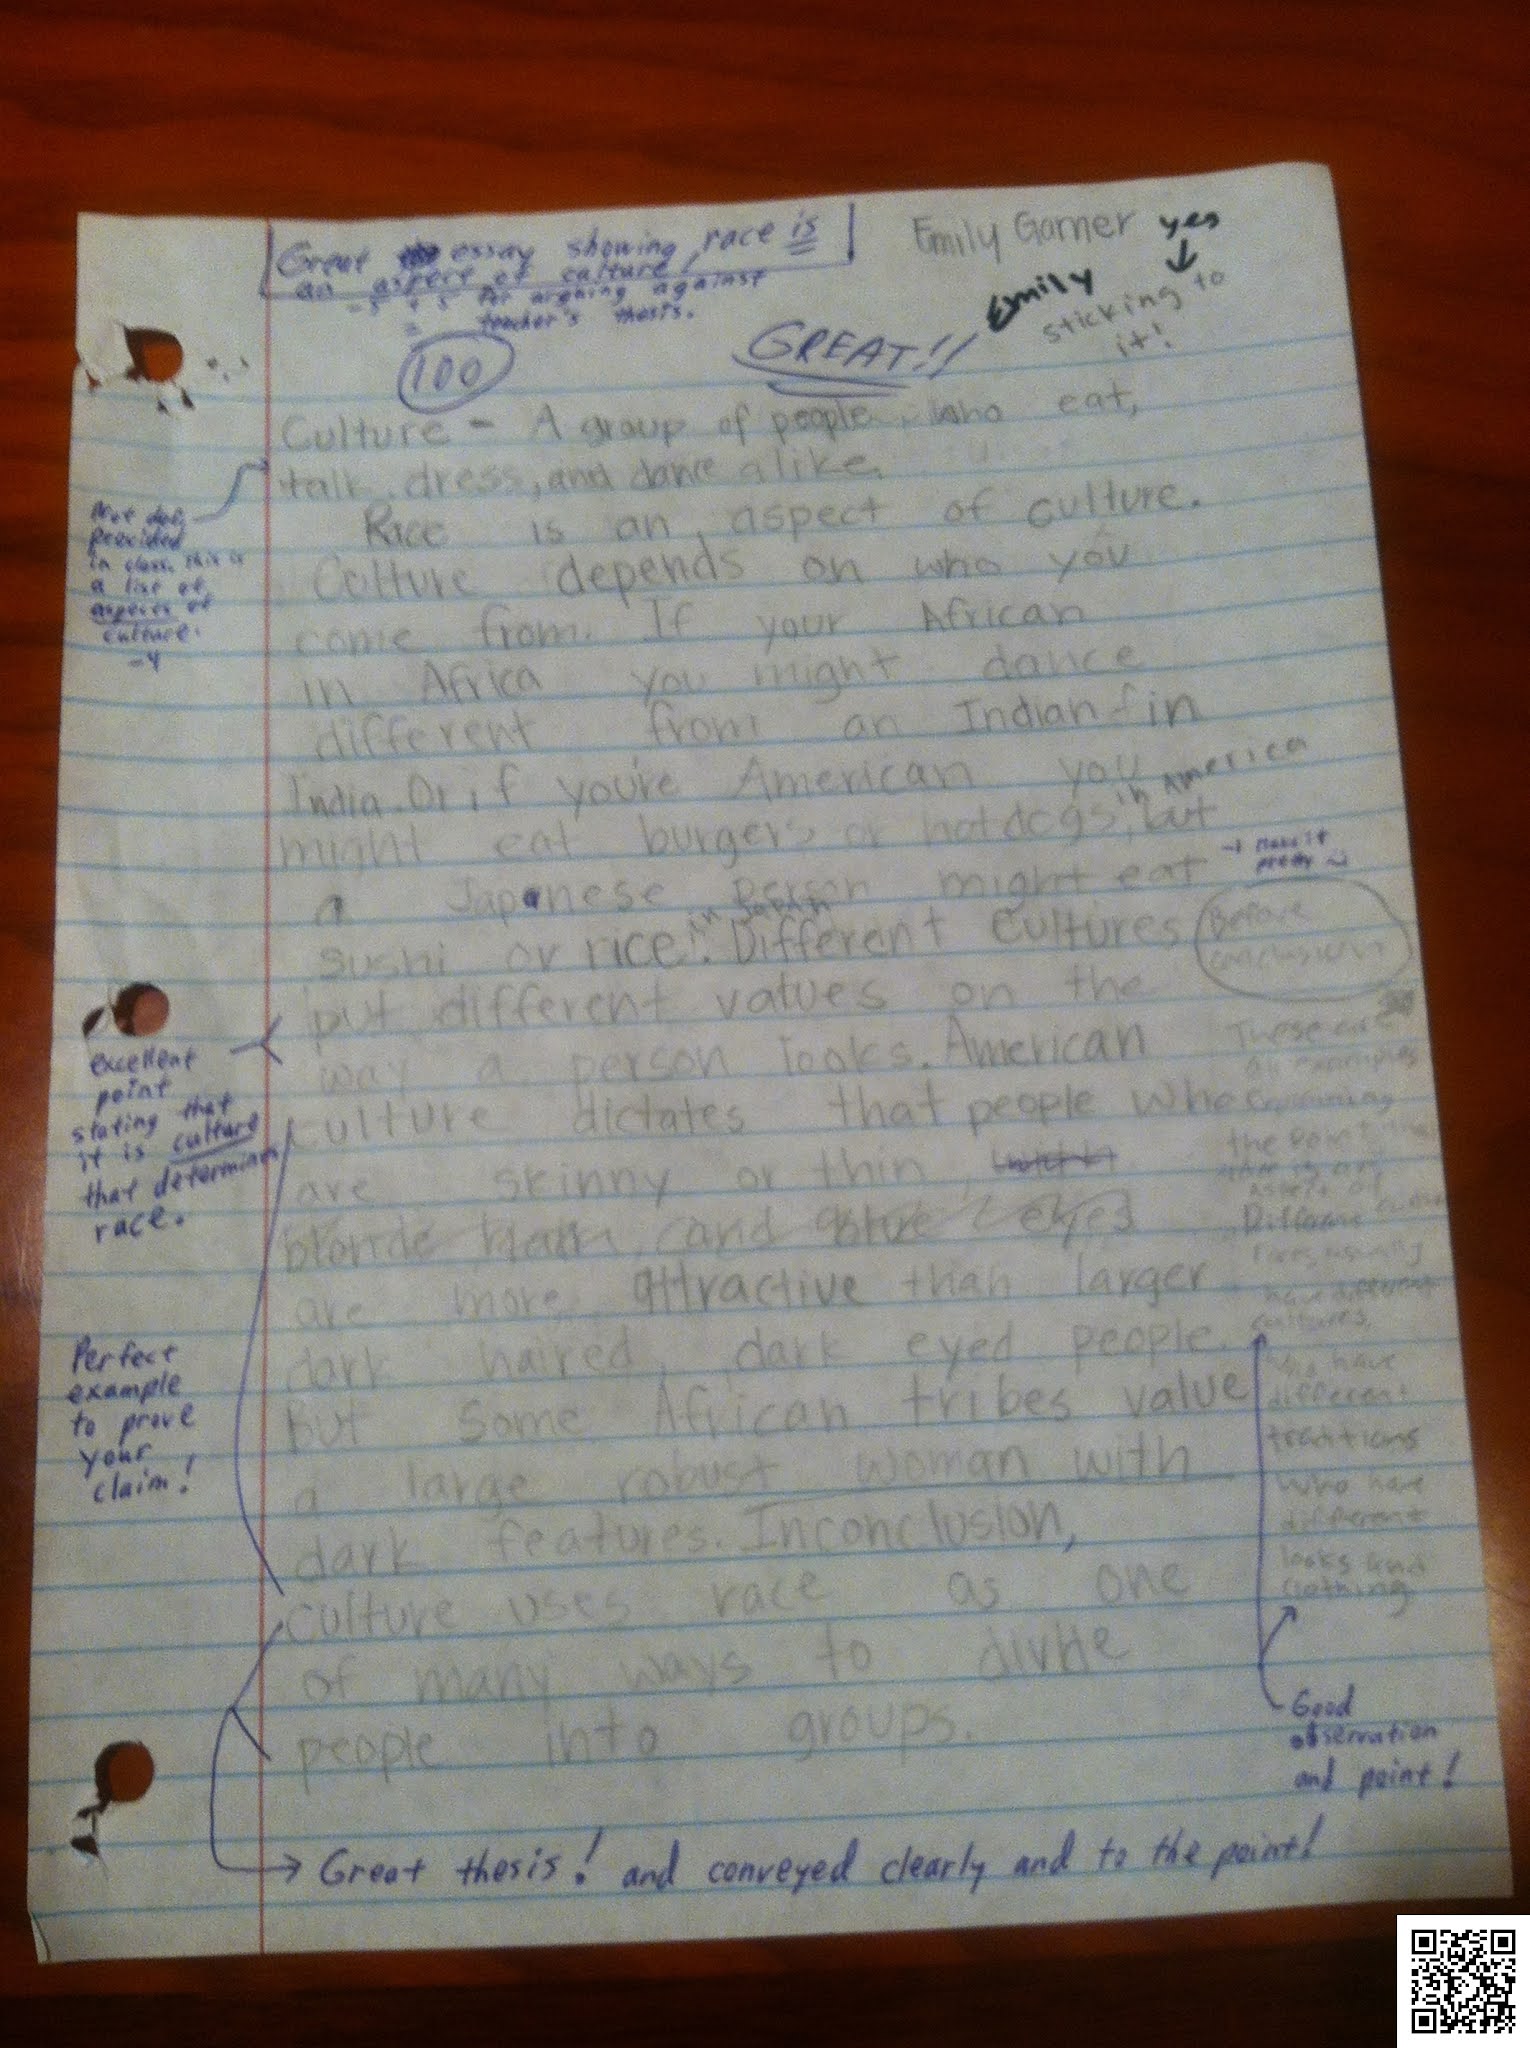 Great essay showing race is
an aspect of culture,
-5 + 5 for arguing against
= teacher's thesis.
100
GREAT!!
Emily Garner
yes
Emily
sticking to
it!
Culture - A group of people, who eat,
talk, dress, and dance alike.
Race is an aspect of culture.
Culture depends on who you
come from. If your African
in Africa you might dance
different from an Indian in
India. Or if you're American you
might eat burgers or hotdogs, in America but
a Japanese person might eat
sushi or rice in Japan. Different cultures
put different values on the
way a person looks. American
culture dictates that people who
are skinny or thin,
blonde hair, and blue eyes
are more attractive than larger
dark haired, dark eyed people.
But some African tribes value
a large robust woman with
dark features. Inconclusion,
culture uses race as one
of many ways to divide
people into groups.
Not def.
provided
in class, this is
a list of
aspects of
culture.
-4
excellent
point
stating that
it is culture
that determines
race.
Perfect
example
to prove
your
claim!
Make it
pretty
Before
conclusion
These are
all examples
the point
Different
races, usually
have different
cultures,
who have
different
traditions
who have
different
looks and
clothing
Good
observation
and point!
Great thesis! and conveyed clearly and to the point!